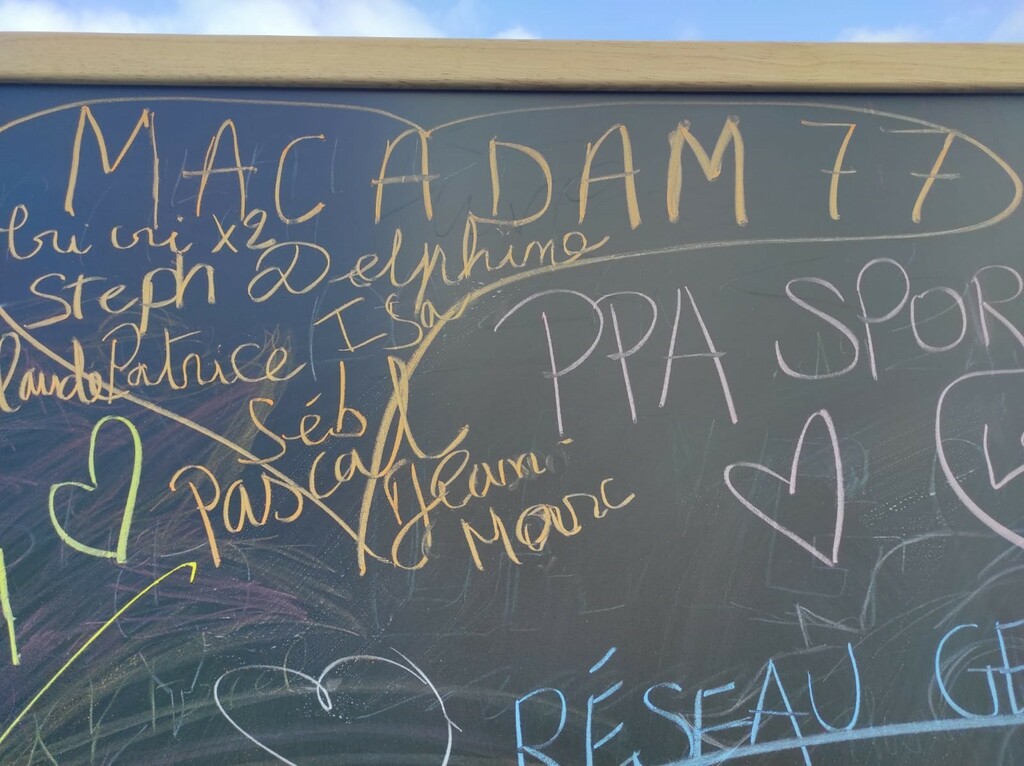 MACADAM 77
x2 Delphine
Steph
Isa
Patrice
PPA SPOR
Séb
Pascal
Jean
Marc
RÉSEAU GE